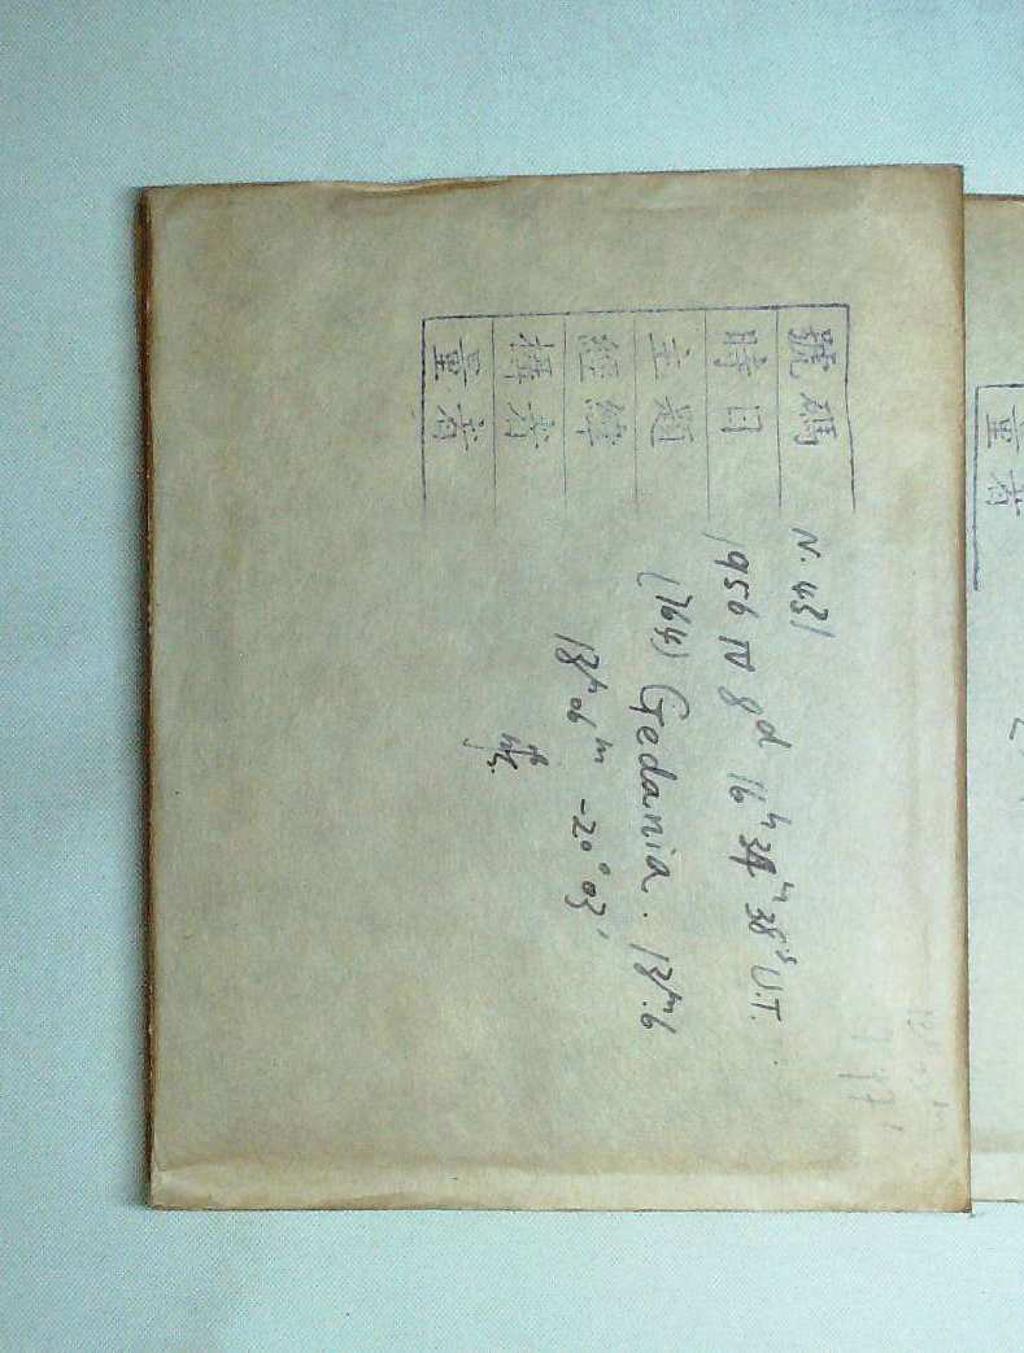 號碼 N. 431
時日 1956 IV 8d 16h 38s U.T.
主題 (764) Gedania. 13m.6
經緯 13h 06m -20° 03'
攝者
量者
量者